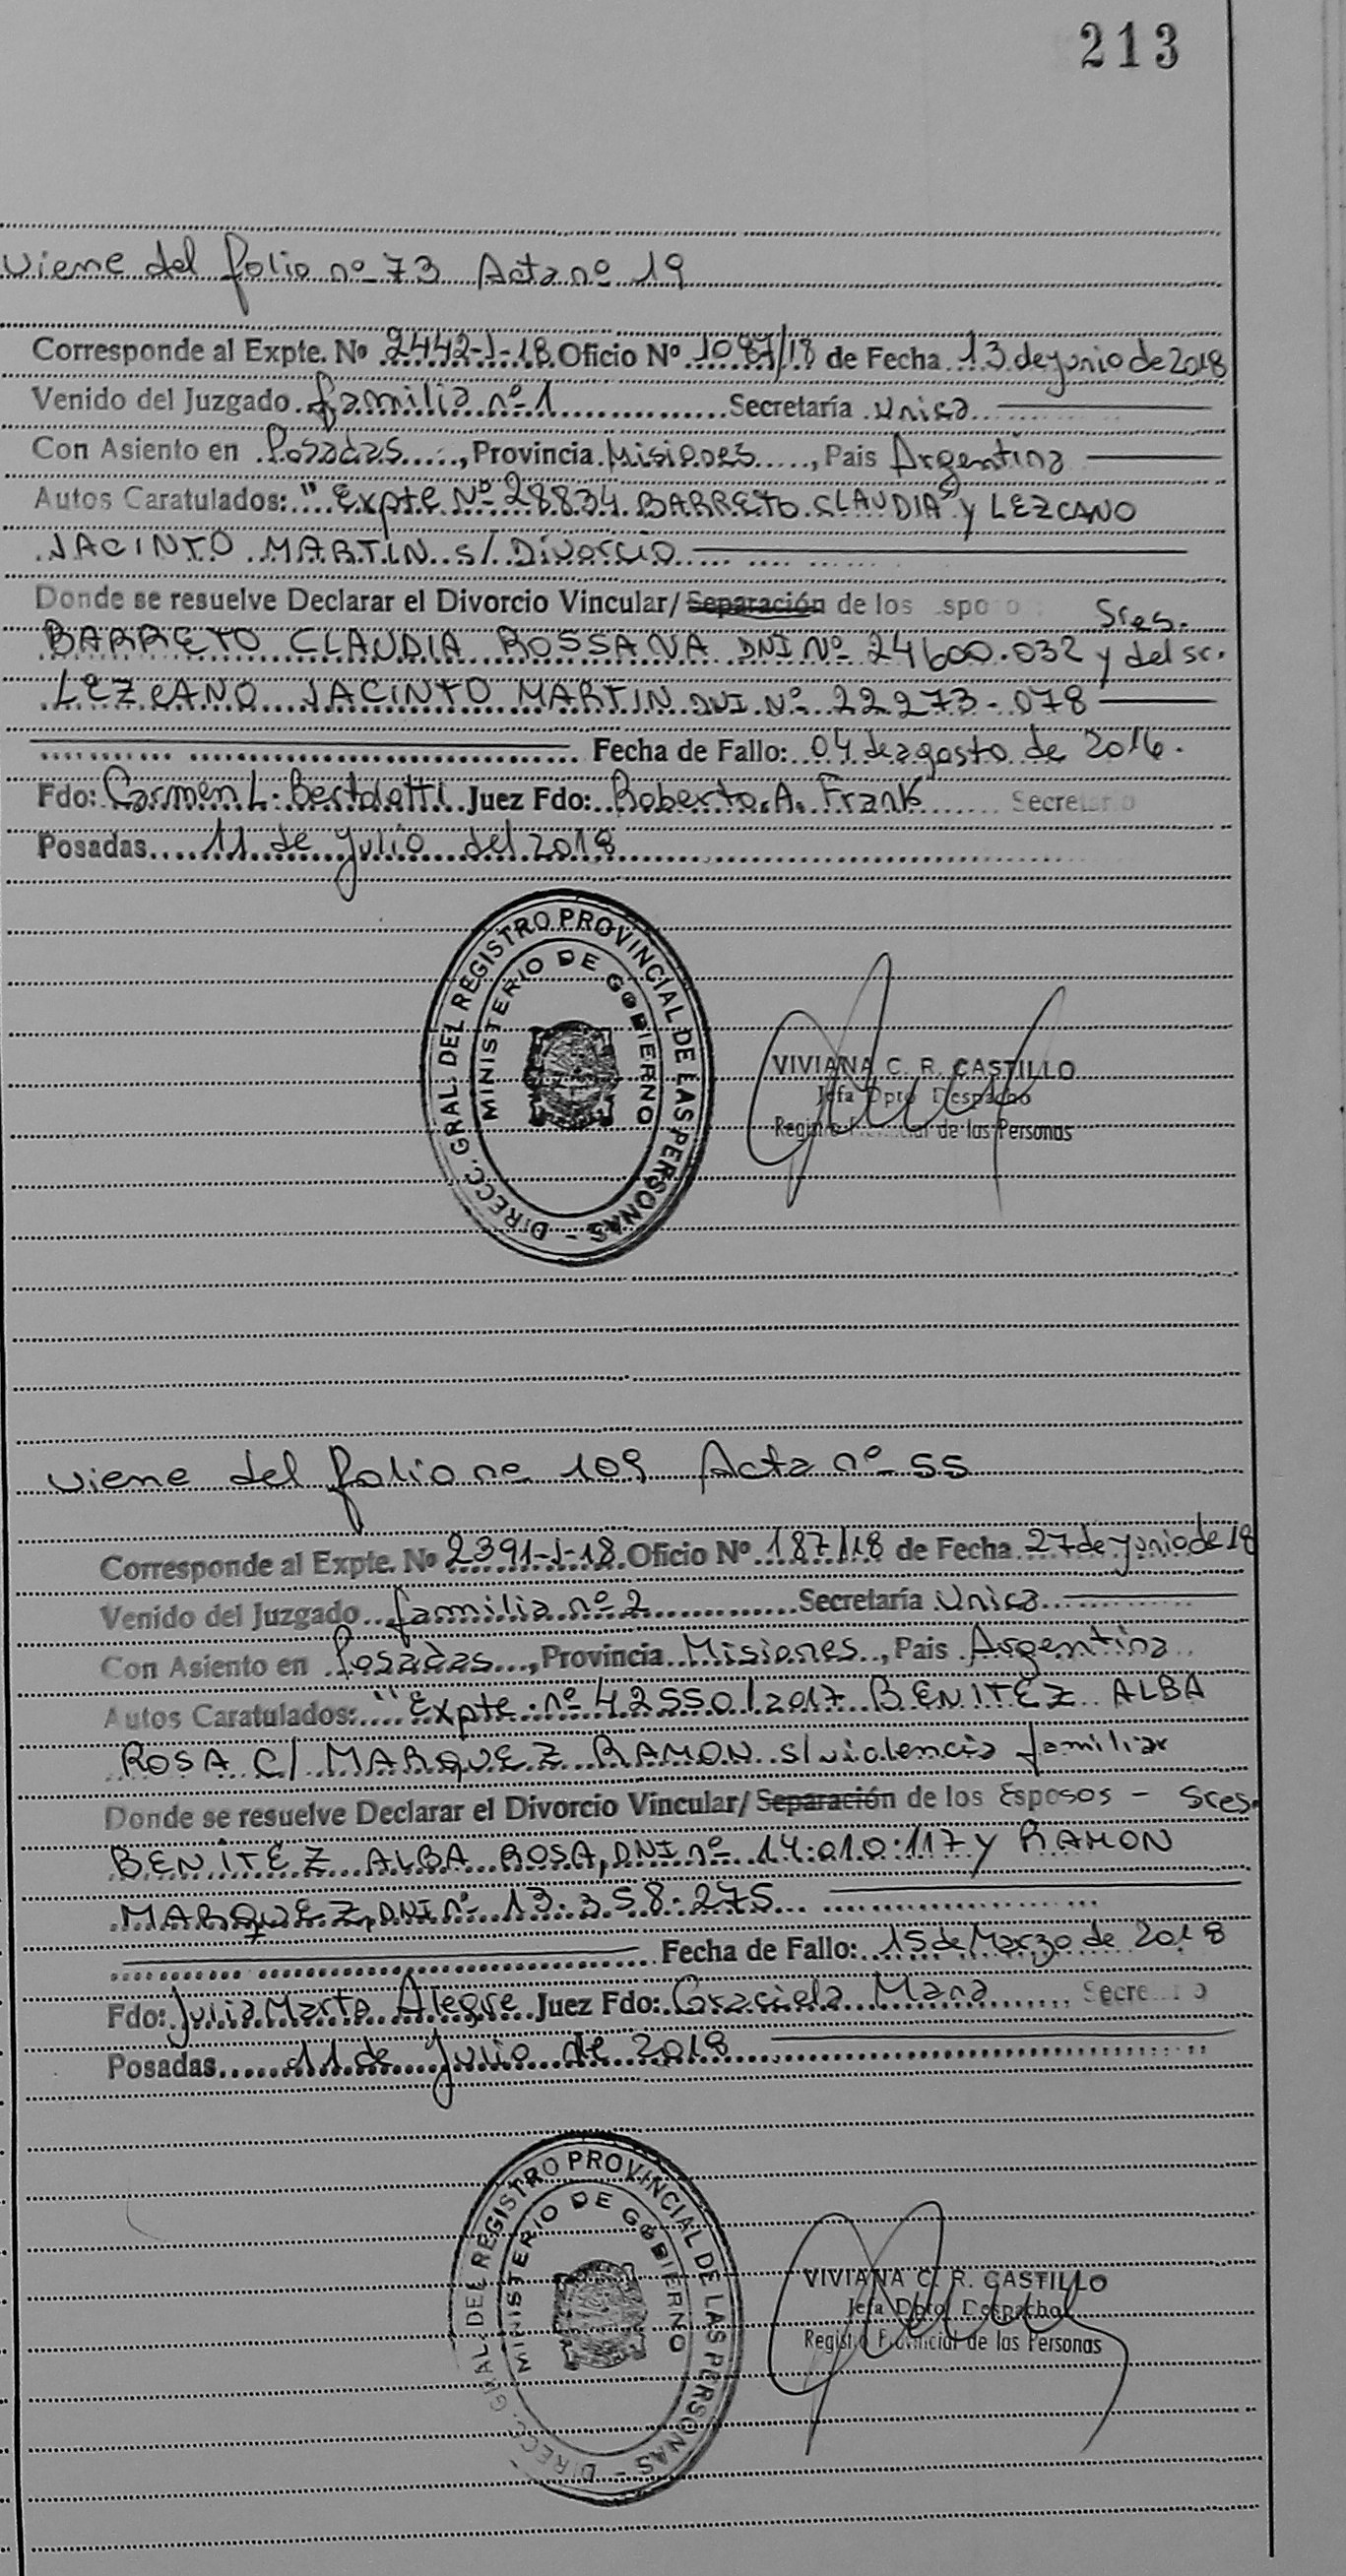 213
viene del folio nº 73 Acta nº 19
Corresponde al Expte. Nº 2442-J-18 Oficio Nº 1087/18 de Fecha 13 de junio de 2018
Venido del Juzgado familia nº 1 Secretaría Unica
Con Asiento en Posadas, Provincia Misiones, Pais Argentina
Autos Caratulados: "Expte Nº 28834 BARRETO CLAUDIA" y LEZCANO
JACINTO MARTIN s/ Divorcio
Donde se resuelve Declarar el Divorcio Vincular/Separación de los Sres.
BARRETO CLAUDIA ROSSANA DNI Nº 24600.032 y del sr.
LEZCANO JACINTO MARTIN DNI Nº 22273-078
Fecha de Fallo: 04 de agosto de 2016.
Fdo: Carmen L. Bertolotti Juez Fdo: Roberto A. Frank Secretario
Posadas 11 de julio del 2018
DIRECC. GRAL. DEL REGISTRO PROVINCIAL DE LAS PERSONAS -
MINISTERIO DE GOBIERNO
VIVIANA C. R. CASTILLO
Jefa Dpto Despacho
Registro Provincial de las Personas
viene del folio nº 109 Acta nº 55
Corresponde al Expte. Nº 2391-J-18 Oficio Nº 187/18 de Fecha 27 de junio de 18
Venido del Juzgado familia nº 2 Secretaría Unica
Con Asiento en Posadas, Provincia Misiones, Pais Argentina
Autos Caratulados: "Expte nº 42550/2017 BENITEZ ALBA
ROSA C/ MARQUEZ RAMON s/violencia familiar
Donde se resuelve Declarar el Divorcio Vincular/Separación de los Esposos - Sres.
BENITEZ ALBA ROSA, DNI nº 14.010.117 y RAMON
MARQUEZ, DNI nº 13.358.275
Fecha de Fallo: 15 de Marzo de 2018
Fdo: Julia Marta Alegre Juez Fdo: Graciela Mana Secretario
Posadas 11 de julio de 2018
DIRECC. GRAL. DEL REGISTRO PROVINCIAL DE LAS PERSONAS -
MINISTERIO DE GOBIERNO
VIVIANA C. R. CASTILLO
Jefa Dpto Despacho
Registro Provincial de las Personas